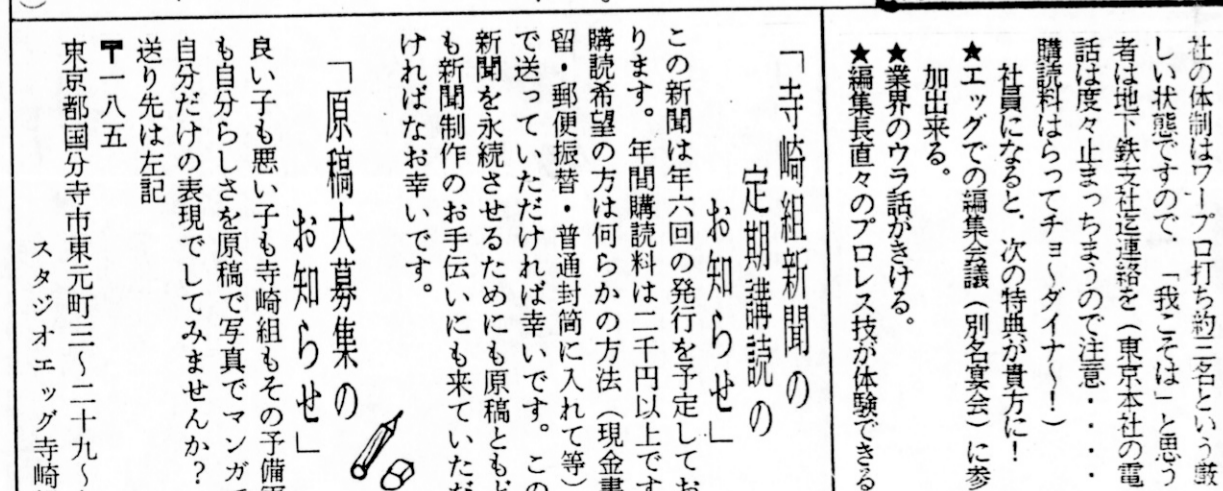 社の体制はワープロ打ち約三名という厳
しい状態ですので、「我こそは」と思う
者は地下鉄支社迄連絡を(東京本社の電
話は度々止まっちまうので注意・・・・
購読料はらってチョ〜ダイナ〜!)
社員になると、次の特典が貴方に!
★エッグでの編集会議(別名宴会)に参
加出来る。
★業界のウラ話がきける。
★編集長直々のプロレス技が体験できる
「寺崎組新聞の
定期講読の
お知らせ」
この新聞は年六回の発行を予定してお
ります。年間購読料は二千円以上です
購読希望の方は何らかの方法(現金書
留・郵便振替・普通封筒に入れて等)
で送っていただければ幸いです。この
新聞を永続させるためにも原稿ともど
も新聞制作のお手伝いにも来ていただ
ければなお幸いです。
「原稿大募集の
お知らせ」
良い子も悪い子も寺崎組もその予備軍
も自分らしさを原稿で写真でマンガで
自分だけの表現でしてみませんか?
送り先は左記
〒一八五
東京都国分寺市東元町三〜二十九〜
スタジオエッグ寺崎